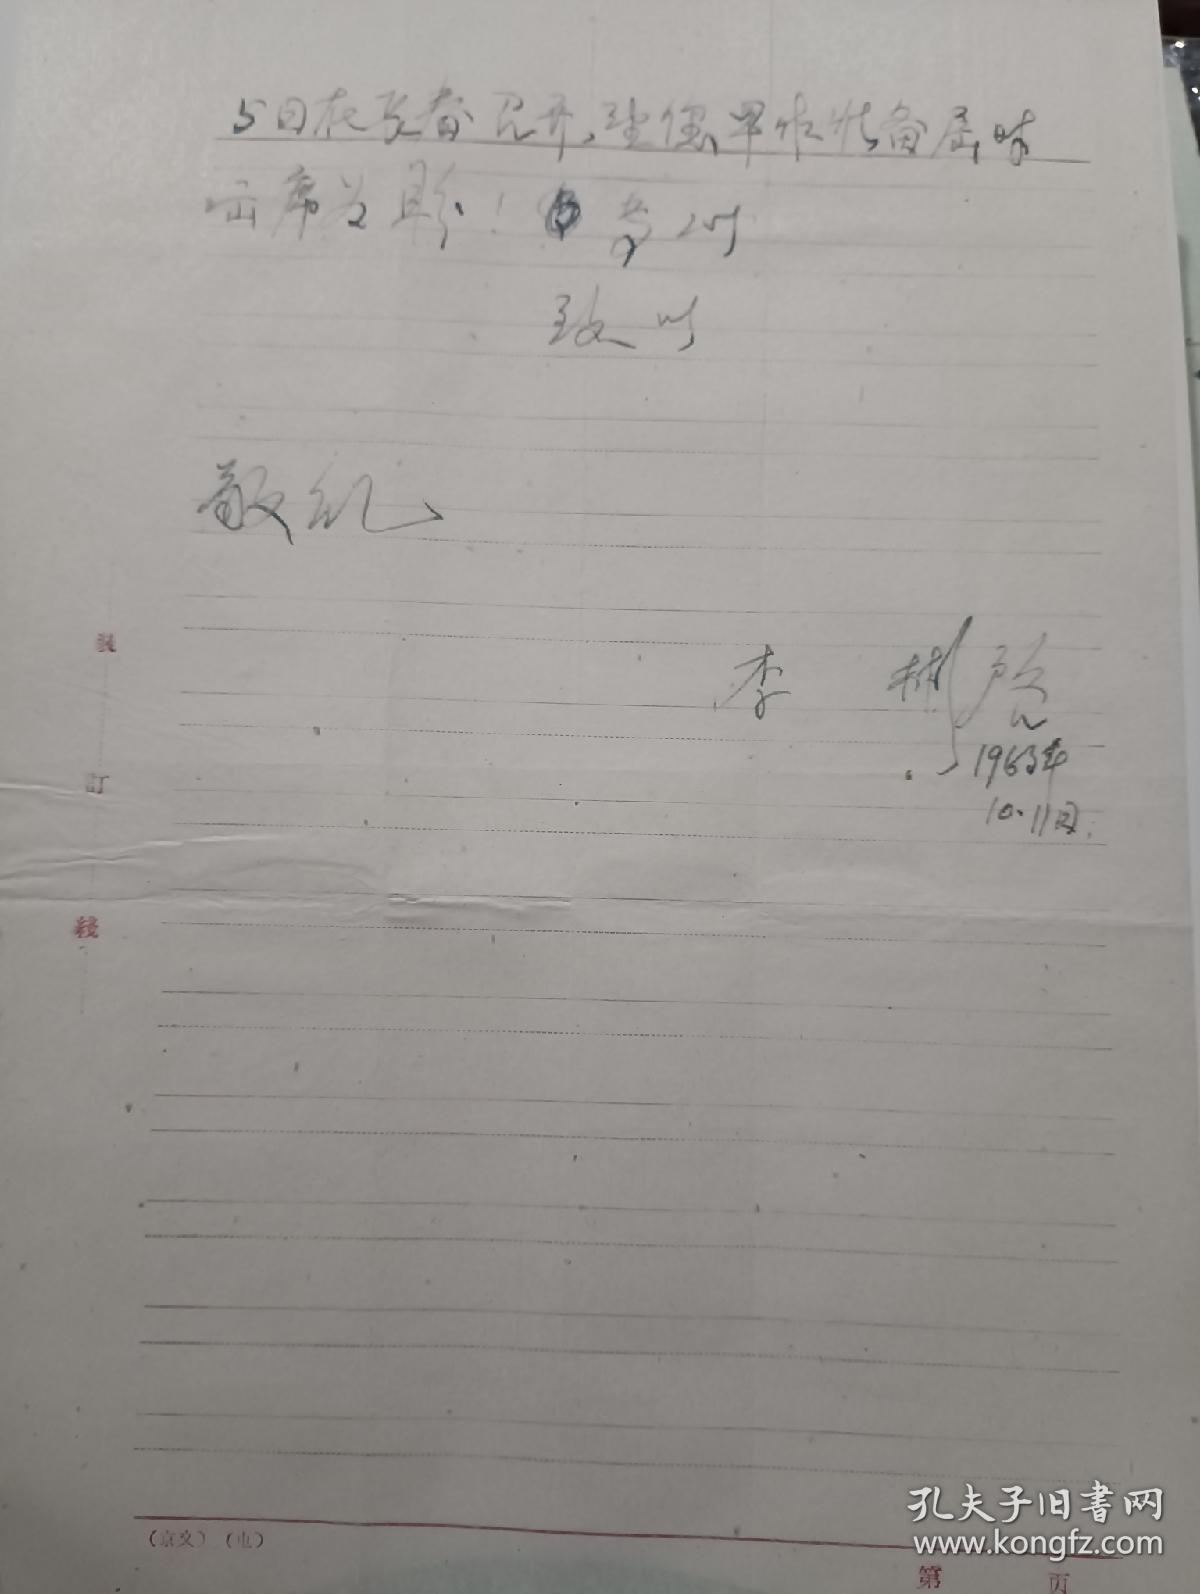 5日在长春召开,望您早作准备届时
出席为盼!专此
致以
敬礼
李 彬启
1963年
10.11日.
装
訂
线
(京文)(电)
第 页
孔夫子旧书网
www.kongfz.com